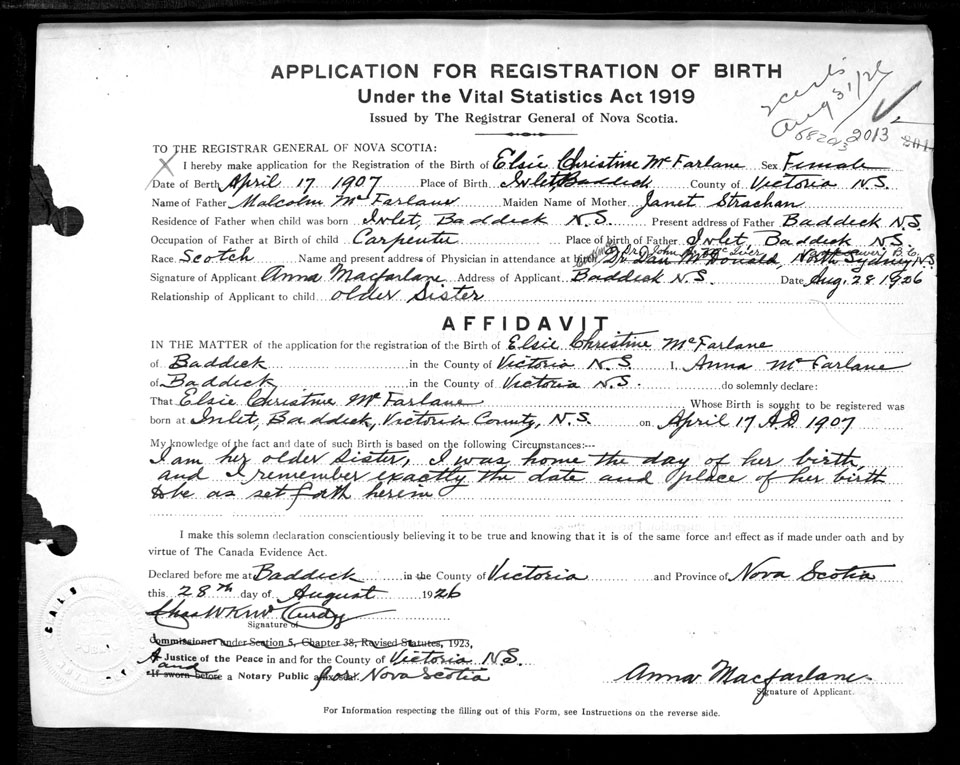 APPLICATION FOR REGISTRATION OF BIRTH
Under the Vital Statistics Act 1919
Issued by The Registrar General of Nova Scotia.
Aug 31/26
2013
TO THE REGISTRAR GENERAL OF NOVA SCOTIA:
X I hereby make application for the Registration of the Birth of Elsie Christine McFarlane Sex Female
Date of Birth April 17 1907 Place of Birth Inlet Baddeck County of Victoria N.S.
Name of Father Malcolm McFarlane Maiden Name of Mother Janet Strachan
Residence of Father when child was born Inlet, Baddeck N.S. Present address of Father Baddeck N.S.
Occupation of Father at Birth of child Carpenter Place of birth of Father Inlet, Baddeck N.S.
Race Scotch Name and present address of Physician in attendance at birth Dr Dan McDonald, North Sydney N.S.
Signature of Applicant Anna Macfarlane Address of Applicant Baddeck N.S. Date Aug. 28 1926
Relationship of Applicant to child older Sister
AFFIDAVIT
IN THE MATTER of the application for the registration of the Birth of Elsie Christine McFarlane
of Baddeck in the County of Victoria N.S. I, Anna McFarlane
of Baddeck in the County of Victoria N.S. do solemnly declare:
That Elsie Christine McFarlane Whose Birth is sought to be registered was
born at Inlet, Baddeck, Victoria County, N.S. on April 17 A.D. 1907
My knowledge of the fact and date of such Birth is based on the following Circumstances:---
I am her older Sister, I was home the day of her birth,
and I remember exactly the date and place of her birth
to be as set forth herein
I make this solemn declaration conscientiously believing it to be true and knowing that it is of the same force and effect as if made under oath and by
virtue of The Canada Evidence Act.
Declared before me at Baddeck in the County of Victoria and Province of Nova Scotia
this 28th day of August 1926
Signature of
Commissioner under Section 5, Chapter 38, Revised Statutes, 1923,
A Justice of the Peace in and for the County of Victoria N.S.
and
*If sworn before a Notary Public for Nova Scotia
Anna Macfarlane
Signature of Applicant.
For Information respecting the filling out of this Form, see Instructions on the reverse side.